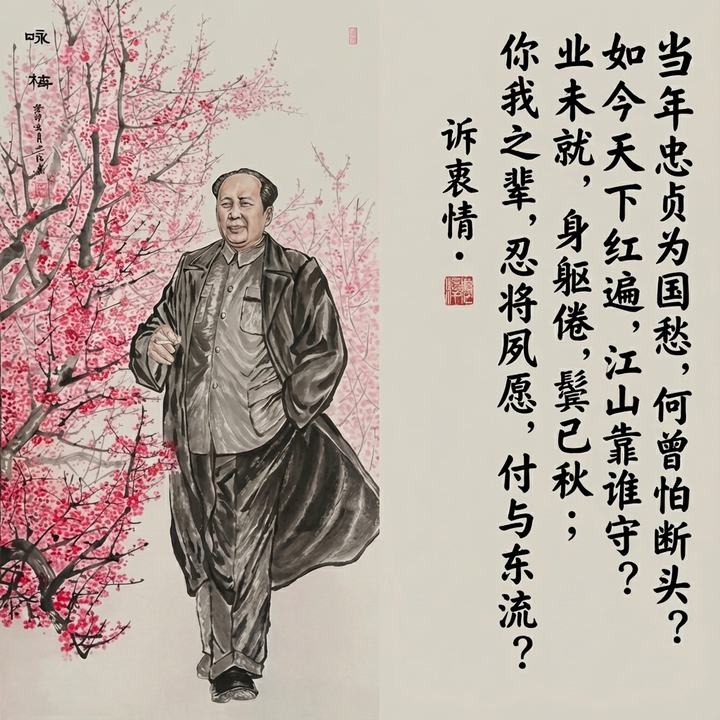 当年忠贞为国愁，何曾怕断头？
如今天下红遍，江山靠谁守？
业未就，身躯倦，鬓已秋；
你我之辈，忍将夙愿，付与东流？
诉衷情·
咏梅